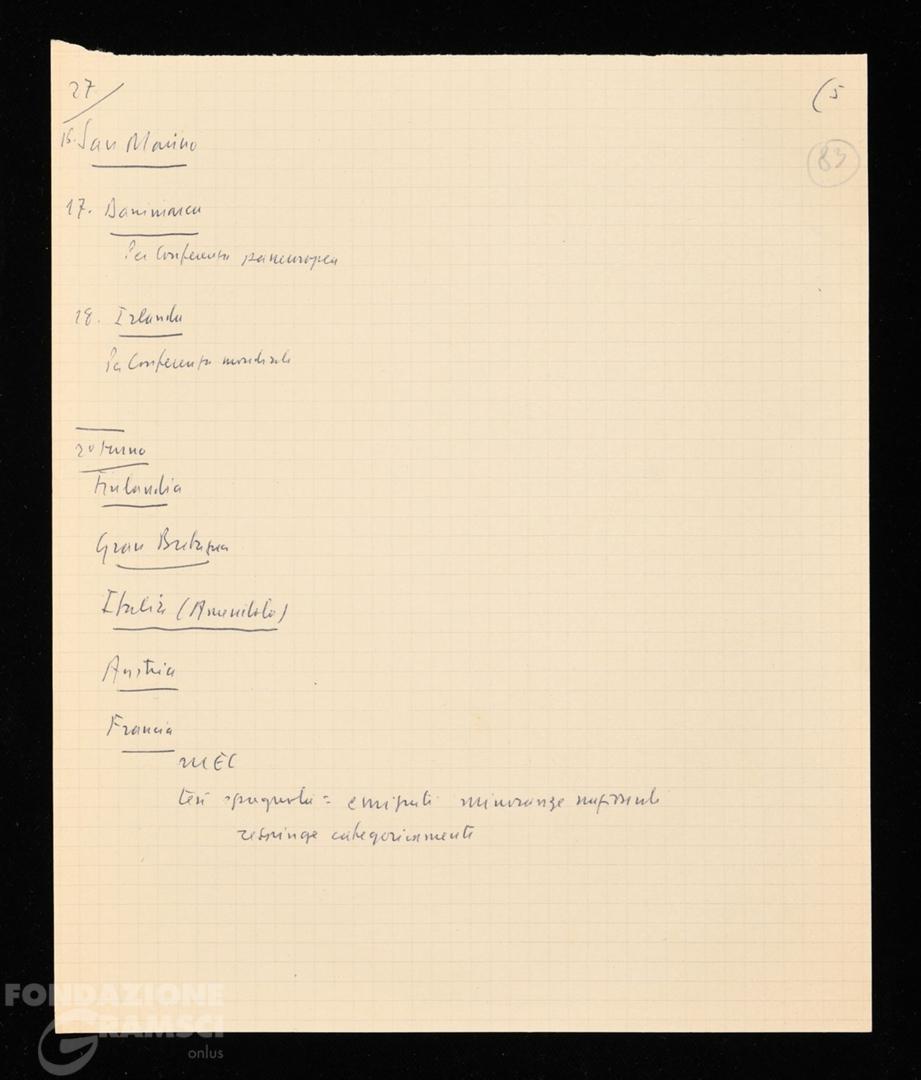 27
(5
83
16. San Marino
17. Danimarca
Per Conferenza paneuropea
18. Irlanda
Per Conferenza mondiale
2º turno
Finlandia
Gran Bretagna
Italia (Amendola)
Austria
Francia
MEC
tesi spagnola = emigrati minoranze nazionali
respinge categoricamente
FONDAZIONE
GRAMSCI
onlus